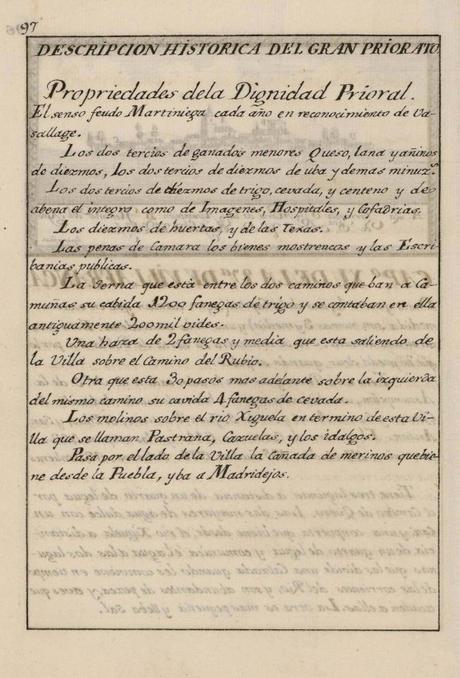 97
DESCRIPCION HISTORICA DEL GRAN PRIORATO
Propriedades dela Dignidad Prioral.
El senso feudo Martiniega cada año en reconocimiento de Va-
sallage.
Los dos tercios de ganados menores Queso, lana y añinos
de diezmos, los dos tercios de diezmos de uba y demas minuz.
Los dos tercios de diezmos de trigo, cevada, y centeno y de
abena el integro como de Imagenes, Hospitales, y Cofadrias.
Los diezmos de huertas, y de las Texas.
Las penas de Camara los bienes mostrencos y las Escri-
banias publicas.
La Serna que esta entre los dos caminos que ban a Ca-
muñas su cabida 1200 fanegas de trigo y se contaban en ella
antiguamente 200 mil vides.
Una haza de 2 fanegas y media que esta saliendo de
la Villa sobre el Camino del Rubio.
Otra que esta 30 pasos mas adelante sobre la izquierda
del mismo camino su cavida 4 fanegas de cevada.
Los molinos sobre el rio Xiguela en termino de esta Vi-
lla que se llaman Pastrana, Cazuelas, y los idalgos.
Pasa por el lado de la Villa la Cañada de merinos que bie-
ne desde la Puebla, y ba a Madridejos.